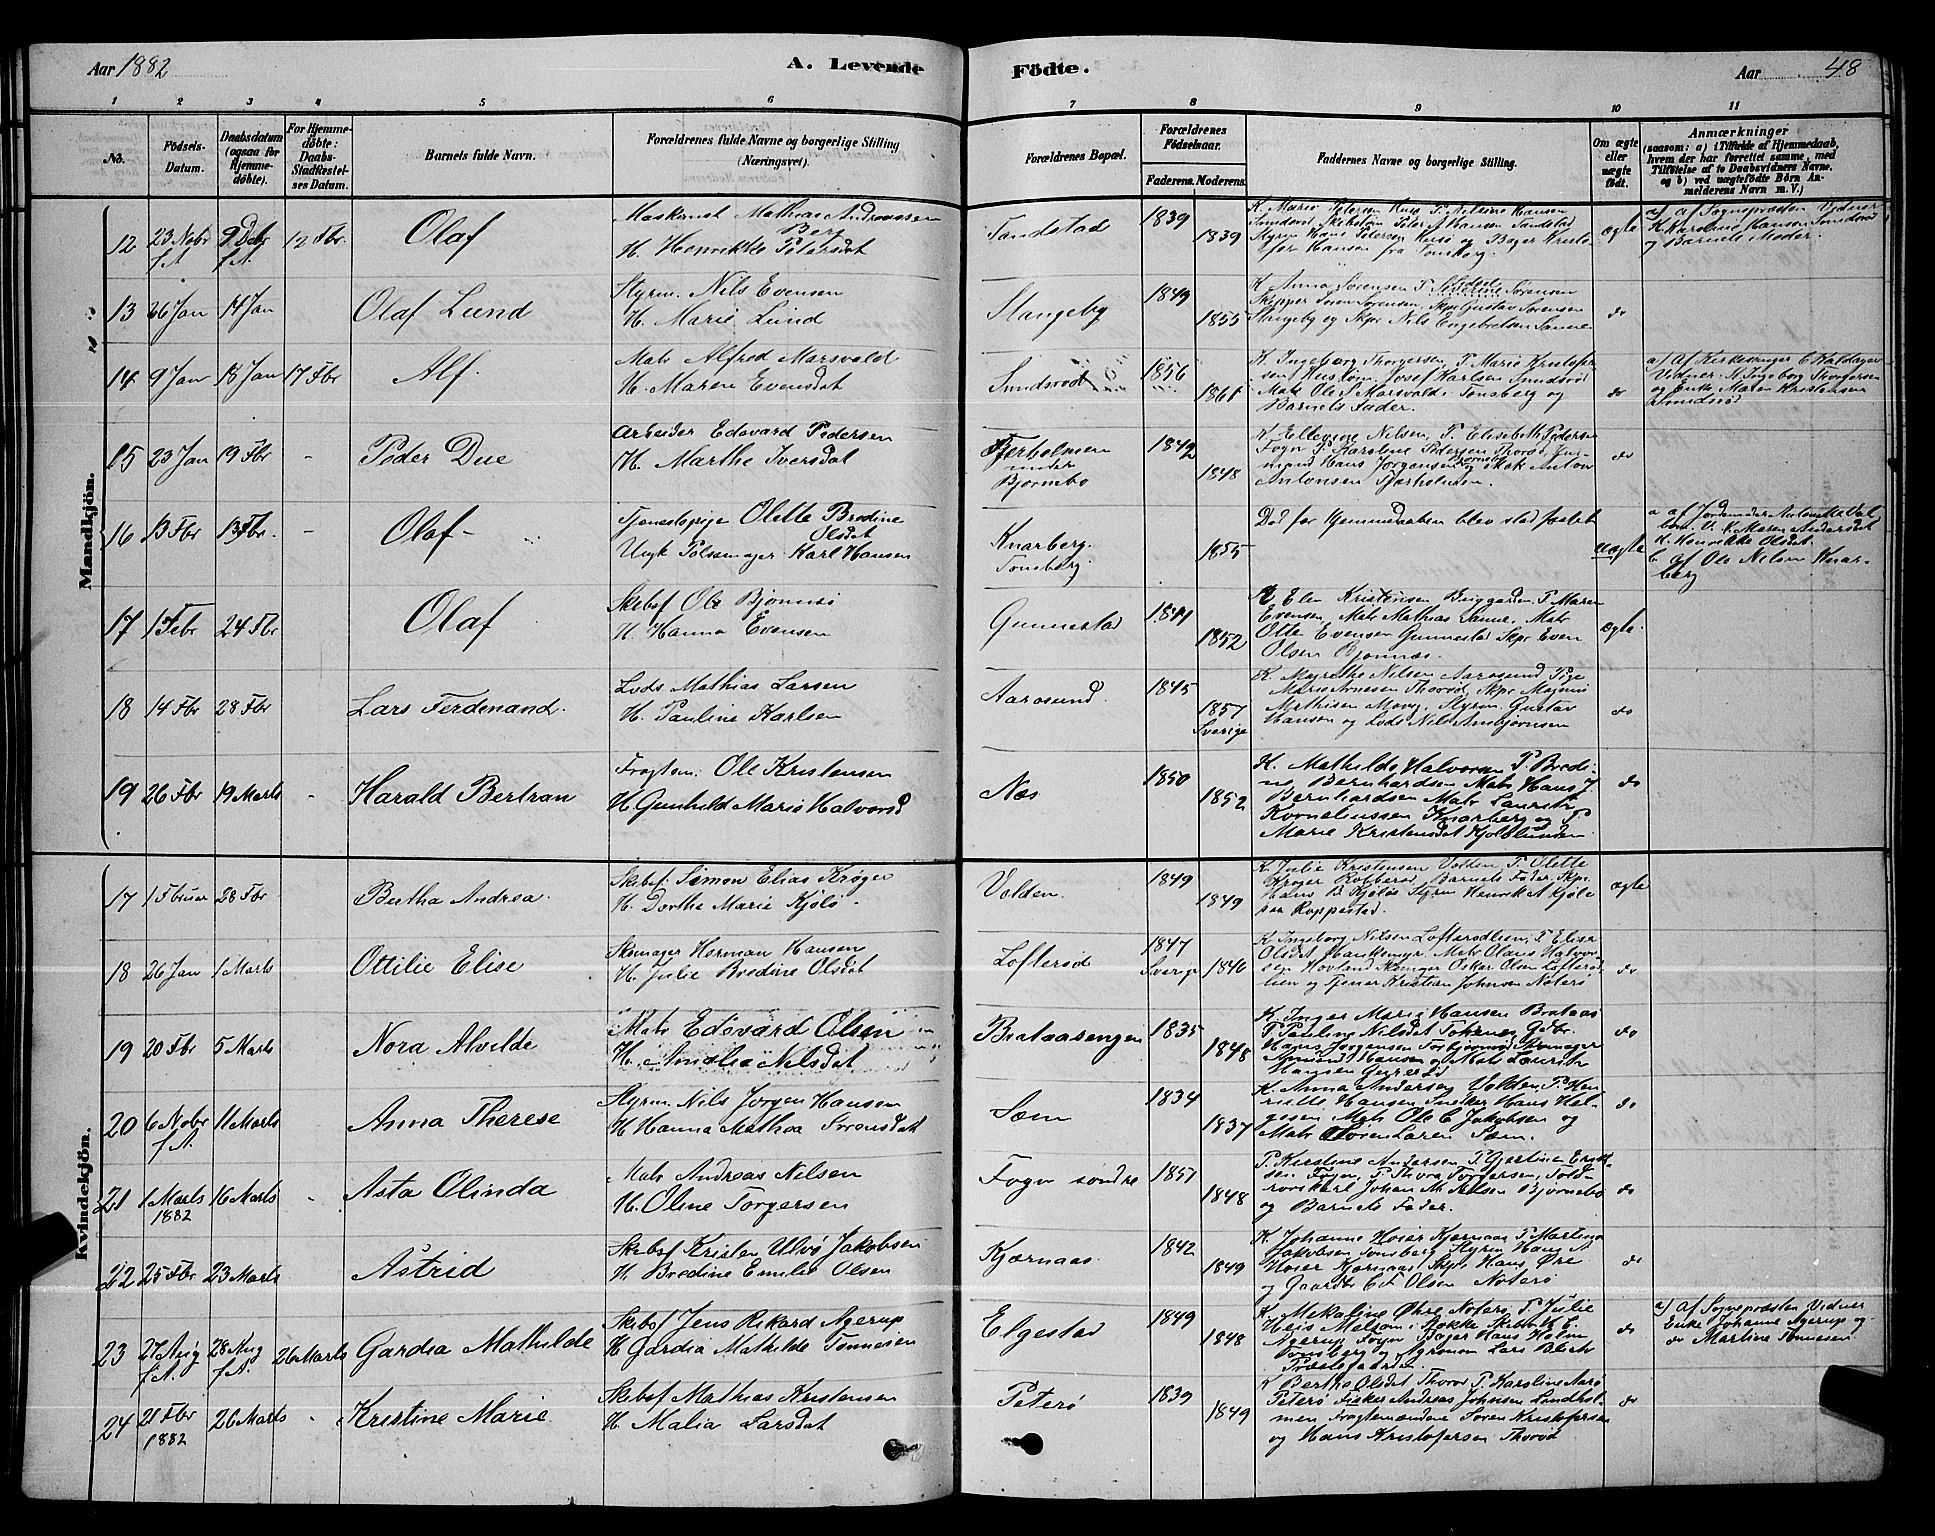 Aar 1882
A. Levende
Födte.
Aar 48
1 2 3 4 5 6 7 8 9 10 11
No.
Födsels-
Datum.
Daabsdatum
(ogsaa for
Hjemme-
döbte).
For Hjemme-
döbte:
Daabs-
Stadfæstel-
ses Datum.
Barnets fulde Navn.
Forældrenes fulde Navne og borgerlige Stilling
(Næringsvei).
Forældrenes Bopæl.
Forældrenes
Födselsaar.
Faderens. Moderens.
Faddernes Navne og borgerlige Stilling.
Om ægte
eller
uægte
födt.
Anmærkninger
(saasom: a) i Tilfælde af Hjemmedaab,
hvem der har forrettet samme, med
Tilföielse af to Daabsvidners Navne,
og b) ved uægtefödte Börn An-
melderens Navn m. V.)
Mandkjön.
12 23 Nobr f.A. 9 Decbr f.A. 12 Fbr. Olaf
Maskinist Mathias Andreassen
Berg
H. Henrikke Petersdat
1839
1839
ægte
a) af Sognepræsten Vidner
K. Karoline Hansen
og Barnets Moder.
13 26 Jan 14 Jan Olaf Lund
Styrm. Nils Evensen
H. Marie Lund
Stangeby
1849
1855
K Anna Sørensen P. Sørensen
Skipper Søren Sørensen, Skpr Gustav Sørensen
Stangeby og Skpr Nils Engebretsen Sanne
do
14 9 Jan 18 Jan 17 Fbr Alf.
Matr Alfred Marsvald
H. Maren Evensdat
Smidsrød
1856
1861
K. Ingeborg Thorgersen, P. Marie Kristof-
sen, Josef Karlsen Smidsrød
Matr Ole Marsvald Tonsberg og
Barnets Fader.
do
a) Af Kirkesanger C. Kaldager
Vidner: K Ingeborg Thorgersen
og Enke Maren Kristensen
Smidsrød
15 23 Jan 19 Fbr - Peder Due
Arbeider Edevard Pedersen
H. Marthe Iversdat
Fjerholmen
under
Bjørnebo
1842
1848
K. Ellevine Nilsen, P. Elisabeth Pedersen
Fogn P. Karoline Pedersen Thorød,
Hans Jørgensen og Matr Anton
Antonsen Fjærholmen.
do
16 13 Fbr 13 Fbr. - Olaf-
Tjenestepige Olette Bredine
Olsdat
Ungk Karl Hansen
Knarberg.
Tonsberg.
1855
Død før Hjemmedaaben blev stadfæstet
uægte
K. Maren Andersdat
K. Henrikke Olsdat.
C. af Ole Nilsen Knar-
berg
17 1 Febr 24 Fbr Olaf
Skibsf Ole Bjønnesø
H. Hanna Evensen
Gunnestad
1852
K Elen Kristensen Buggarden P. Maren
Evensen, Matr Mathias Sanne, Matr
Otto Evensen Gunnestad Skpr Even
Olsen Bjønnes.
ægte.
18 14 Fbr 28 Fbr Lars Ferdinand.
Lods Mathias Larsen
H. Pauline Karlsen
Aarøsund.
1845
1857
Sverige
K. Myrethe Nilsen Aarøsund Pige
Marie Arnesen Thorød, Skpr Magnus
Mathisen Moug, Styrm. Gustav
Hansen og Lods Nils Ambjørnsen
do
19 26 Fbr 19 Marts - Harald Bertran
Fragtsm. Ole Kristensen
H. Gunhild Marie Halvorsd
Næs
1850
1852
K. Mathilde Halvorsen P. Bredi-
ne Bernhardsen Matr Hans J
Bernhardsen Matr Laurits
Kornelius­sen Knarberg og P.
Marie Kristensdat Kjøldlunden
do
Kvindekjön.
17 1 Februar 28 Fbr Bertha Andrea.
Skibsf. Simon Elias Krøger
H. Dorthe Marie Kjølø
Volden.
1849
1849
K. Julie Kristensen Volden P. Olette
Krøger Robberød Barnets Fader. Skpr.
Hans B Kjølø Styrm Henrik A Kjølø
paa Roppestad.
ægte
18 26 Jan 1 Marts Ottilie Elise
Skomager Herman Hansen
H. Julie Bredine Olsdat
Lofterød
1847
Sverige
1846
K. Ingeborg Nilsen Lofterødlien, P. Elisa
Olsdat Matr Olaus Halvor-
sen Hovland Oskar Olsen Lofterød-
lien og Tjener Kristian Johnsen Nøterø
do
19 20 Fbr 5 Marts Nora Alvilde
Matr Edevard Olsen
H. Amalia Nilsdat
Brataasengen
1835
1848
K. Inger Marie Hansen Brataas
P. Pauline Nilsdat Gdbr.
Hans Jørgensen Torbjørnrød Skomager
Amund Hansen og Matr Laurits
Hansen
do
20 6 Nobr f.A. 11 Marts Anna Therese
Styrm. Nils Jørgen Hansen
H Hanna Mathea Sørensdat
Sæm
1834
1837
K. Anna Andersen Volden, P. Hen-
riette Hansen Snekker Hans Hel-
gesen, Matr Ole C Jakobsen og
Matr Soren Larsen Sæm.
do
21 1 Marts 1882 16 Marts - Asta Olinda
Matr Andreas Nilsen
H. Oline Torgersen
Fogn søndre
1851
1848
P. Kirstine Andersen P. Gjertine Erik-
sen Fogn, P. Thora Torgersen, Told-
rorskarl Johan M. Nilsen Bjørnebo
og Barnets Fader.
do
22 25 Fbr 23 Marts Astrid
Skibsf Kristen Ulvø Jakobsen
H. Bredine Emilie Olsen
Kjærnaas.
1842
1849
K. Johanne Høier Kjærnaas P. Martina
Jakobsen Tonsberg Styrm Hans A
Høier Kjærnaas Skpr Hans Øre
og Gaardbr C F Olsen Nøterø
do
23 27 Aug f.A. 28 Aug f.A. 26 Marts Gardia Mathilde
Skibsf Jens Rikard Agerup
H Gardia Mathilde Tønnesen
Elgestad
1849
1848
K. Mekaline Øhre Nøterø P. Julie
Heis Melsom i Stokke Skibsf K C
Agerup Fogn Bager Hans Holm
Tonsberg og Agronom Lars Blich
Præstegaarden
do
a) Af Sognepræsten Vidner
Enke Johanne Agerup og
do Martine Tønnesen
24 21 Fbr 1882 26 Marts - Kristine Marie
Skibsf Mathias Kristensen
H Malia Larsdat
Peterø
1839
1849
K Berthe Olsdat Thorød P Karoline Aarø
Peterø Fisker Andreas Johnsen Lindhol-
men Fragtemændene Søren Kristofersen
og Hans Kristofersen Thorød
do